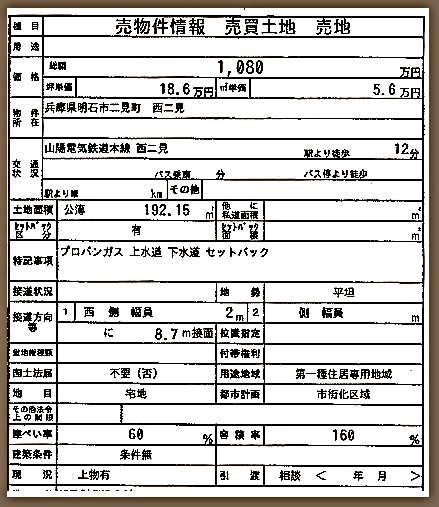 種目 売物件情報 売買土地 売地
用途
価格 総額 1,080 万円
坪単価 18.6万円 ㎡単価 5.6万円
物件所在 兵庫県明石市二見町 西二見
交通状況 山陽電気鉄道本線 西二見 駅より徒歩 12分
バス乗車 分 バス停より徒歩
駅より車 km その他
土地面積 公簿 192.15 ㎡ 他に私道面積 ㎡
セットバック区分 有 セットバック面積 ㎡
特記事項 プロパンガス 上水道 下水道 セットバック
接道状況 地勢 平坦
接道方向等 1 西 側 幅員 2m 2 側 幅員 m
に 8.7m接面 位置指定
借地権種類 付帯権利
国土法届 不要(否) 用途地域 第一種住居専用地域
地目 宅地 都市計画 市街化区域
その他法令上の制限
建ぺい率 60 % 容積率 160 %
建築条件 条件無
現況 上物有 引渡 相談 < 年 月 >